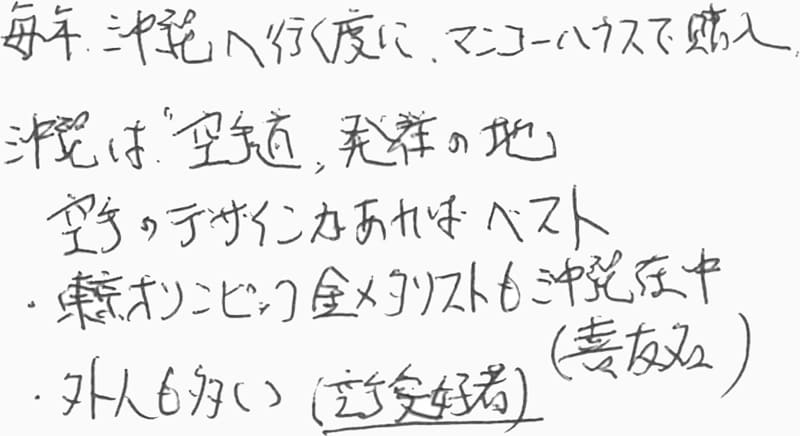 毎年、沖縄へ行く度に、マンゴーハウスで購入、
沖縄は、"空手道"発祥の地
空手のデザインがあればベスト
・東京オリンピック金メダリストも沖縄在中
(喜友名)
・外人も多い(空手愛好者)